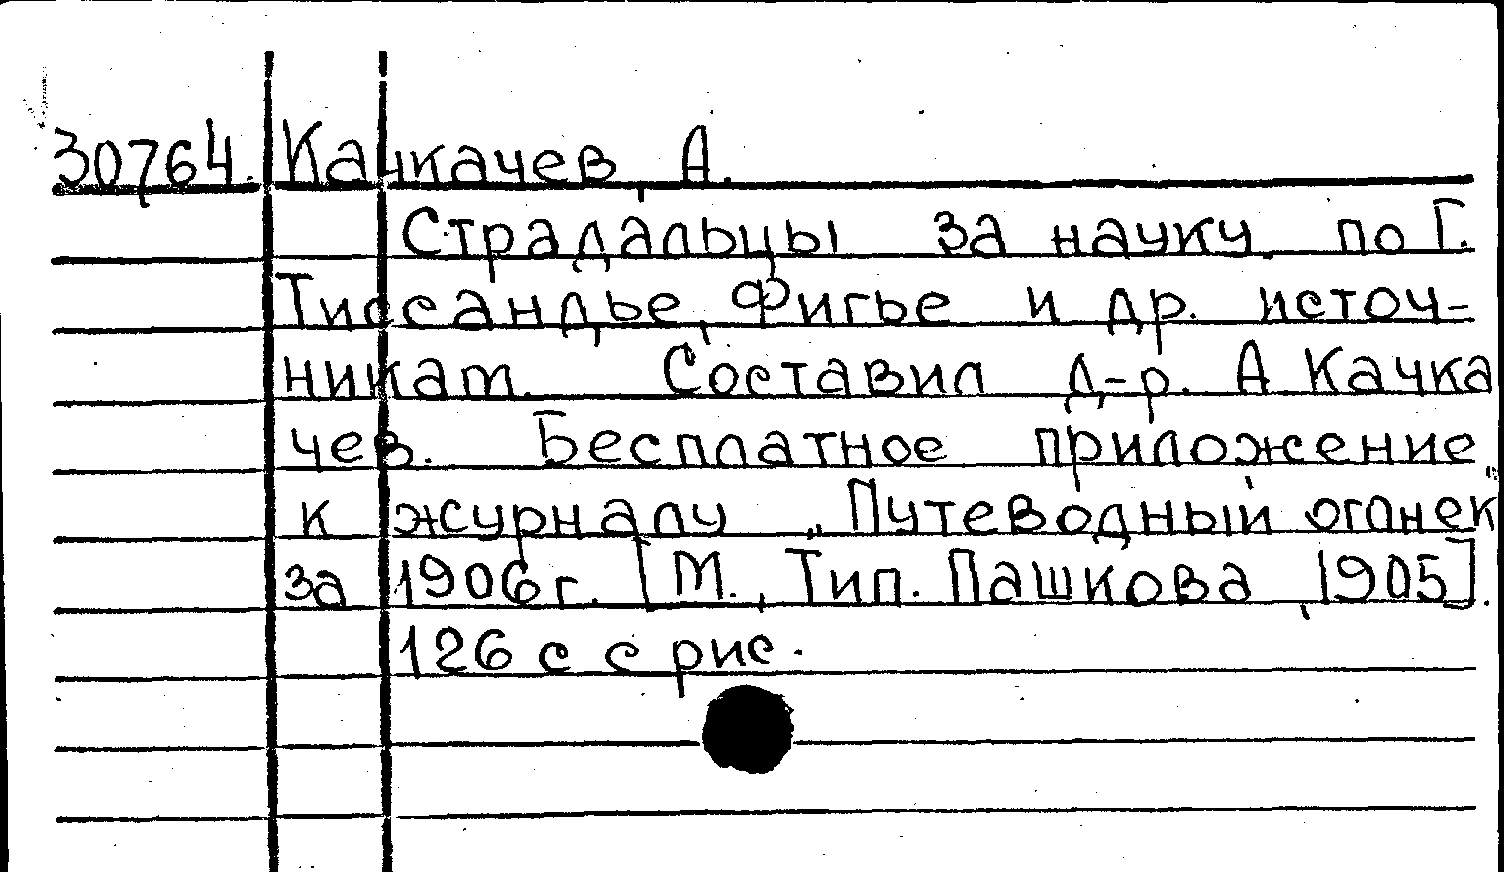 30764. Качкачев, А.
Страдальцы за науку. по Г.
Тиссандье, Фигье и др. источ=
никам. Составил д-р. А Качка
чев. Бесплатное приложение
к журналу „Путеводный огонек"
за 1906 г. [М., Тип. Пашкова, 1905].
126 с с рис.